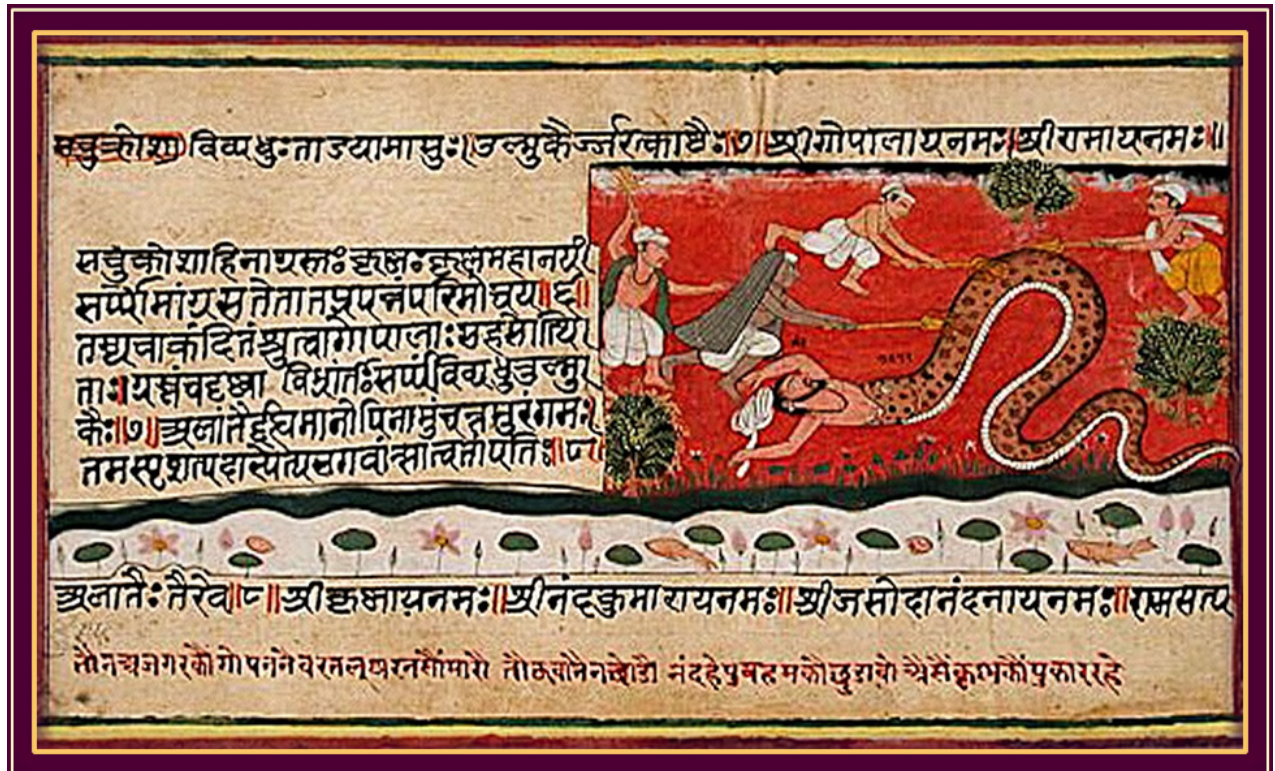 सचुक्रोशा विव्यधुःताडयामासुः।उल्मुकैर्ज्जरत्काष्टैः।७॥श्रीगोपालायनमः॥श्रीरामायनमः॥
सचुक्रोशाहिनाग्रस्तः कृष्णकृष्णमहानयं
सर्प्पोमांग्रसतेतातप्रपन्नंपरिमोचय॥६॥
तस्यचाक्रंदितंश्रुत्वागोपालाःसहसोत्थि
ताः॥ग्रस्तंचदृष्ट्वा विभ्रांताःसर्प्पंविव्यधुउल्मु
कैः॥७॥अलातैर्द्दह्यमानोपिनामुंचत्तमुरंगमः
तमस्पृशत्पदाभ्येत्यभगवान्सात्वतांपतिः॥८॥
अलातैःतैरेव॥८॥श्रीकृष्णायनमः॥श्रीनंदकुमारायनमः॥श्रीजसोदानंदनायनमः॥
तौन अजगरकौ गोपननें नंदहे पुकाररहे